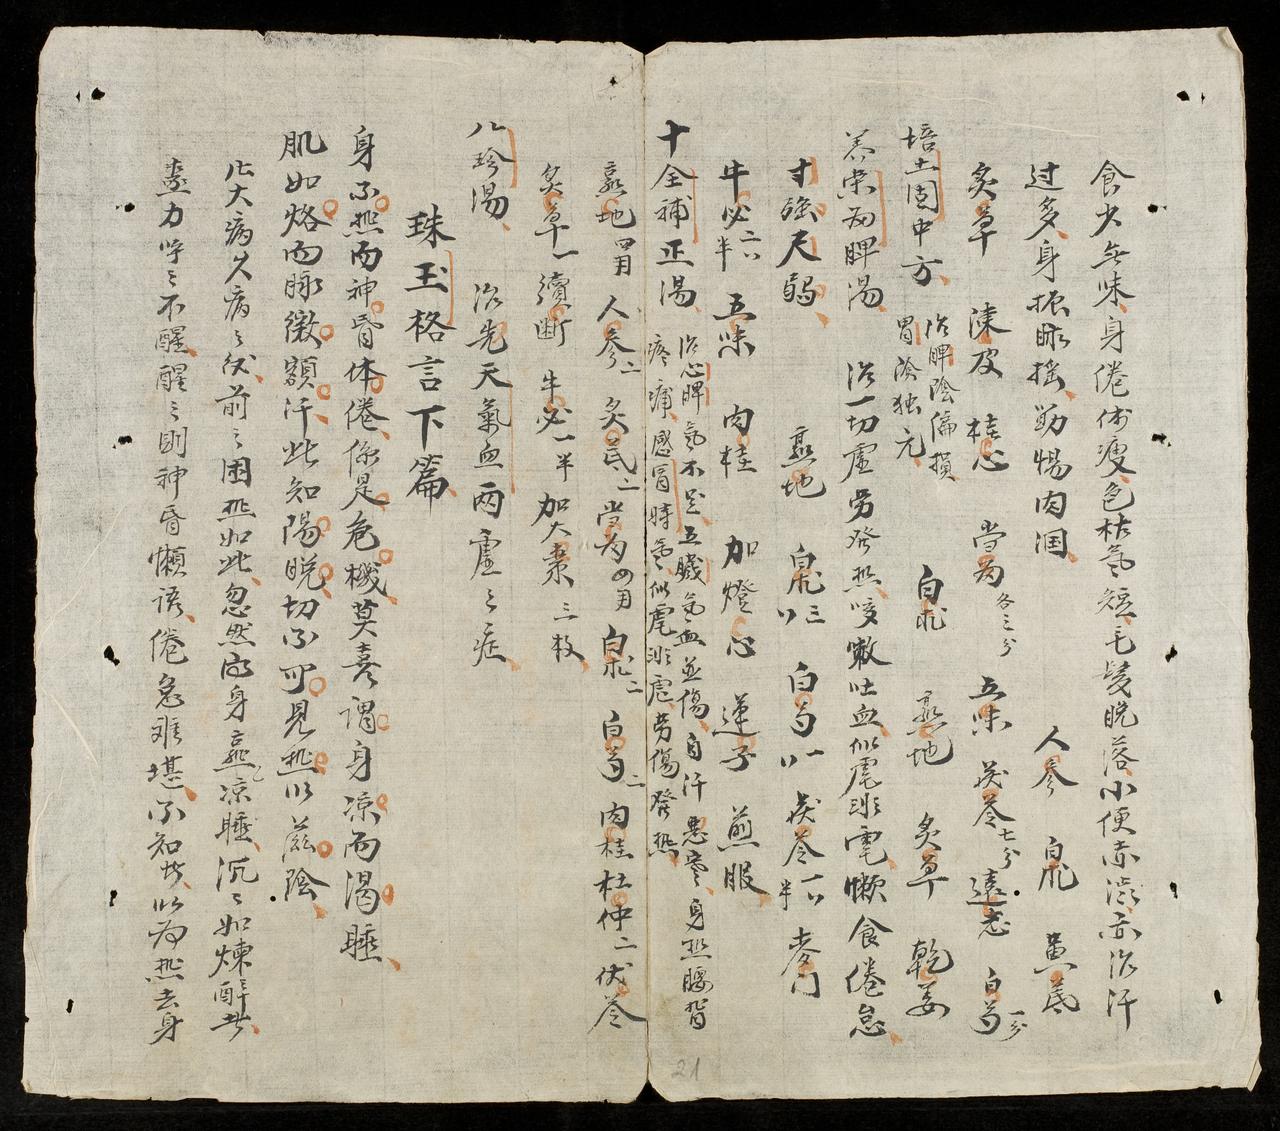 食少無味身倦体瘦色枯氣短毛髮脫落小便赤澁亦治汗
过多身振脉摇動惕肉瞤 人參 白朮 黃芪
炙草 陳皮 桂心 當为各三分 五味 茯苓七分 遠志 白芍一分
培土固中方 治脾陰偏損胃陰独亢 白朮 熟地 炙草 乾姜
养荣歸脾湯 治一切虛勞發热咳嗽吐血似虛非虛懶食倦怠
寸強尺弱 熟地 白朮三 白芍一 茯苓一半 麥门
牛必二半 五味 肉桂 加燈心 蓮子 煎服
十全補正湯 治心脾氣不足五臟氣血並傷自汗惡寒身热腰背
疼痛感冒時氣似虛非虛劳傷發热
熟地 人參二 炙芪二 當为 白朮二 白芍二 肉桂 杜仲二 伏苓
炙草一 續断 牛必一半 加大棗三枚
八珍湯 治先天氣血两虛之症
珠玉格言下篇
身不热而神昏体倦係是危機莫喜謂身凉而渴睡
肌如烙而脉微額汗此知陽脫切不可見热以滋陰
凡大病久病之後前之困热如此忽然身熱凉睡沉之如煉醉者
盡力呼之不醒醒之則神昏懶语倦怠难堪不知者以為热去身
21